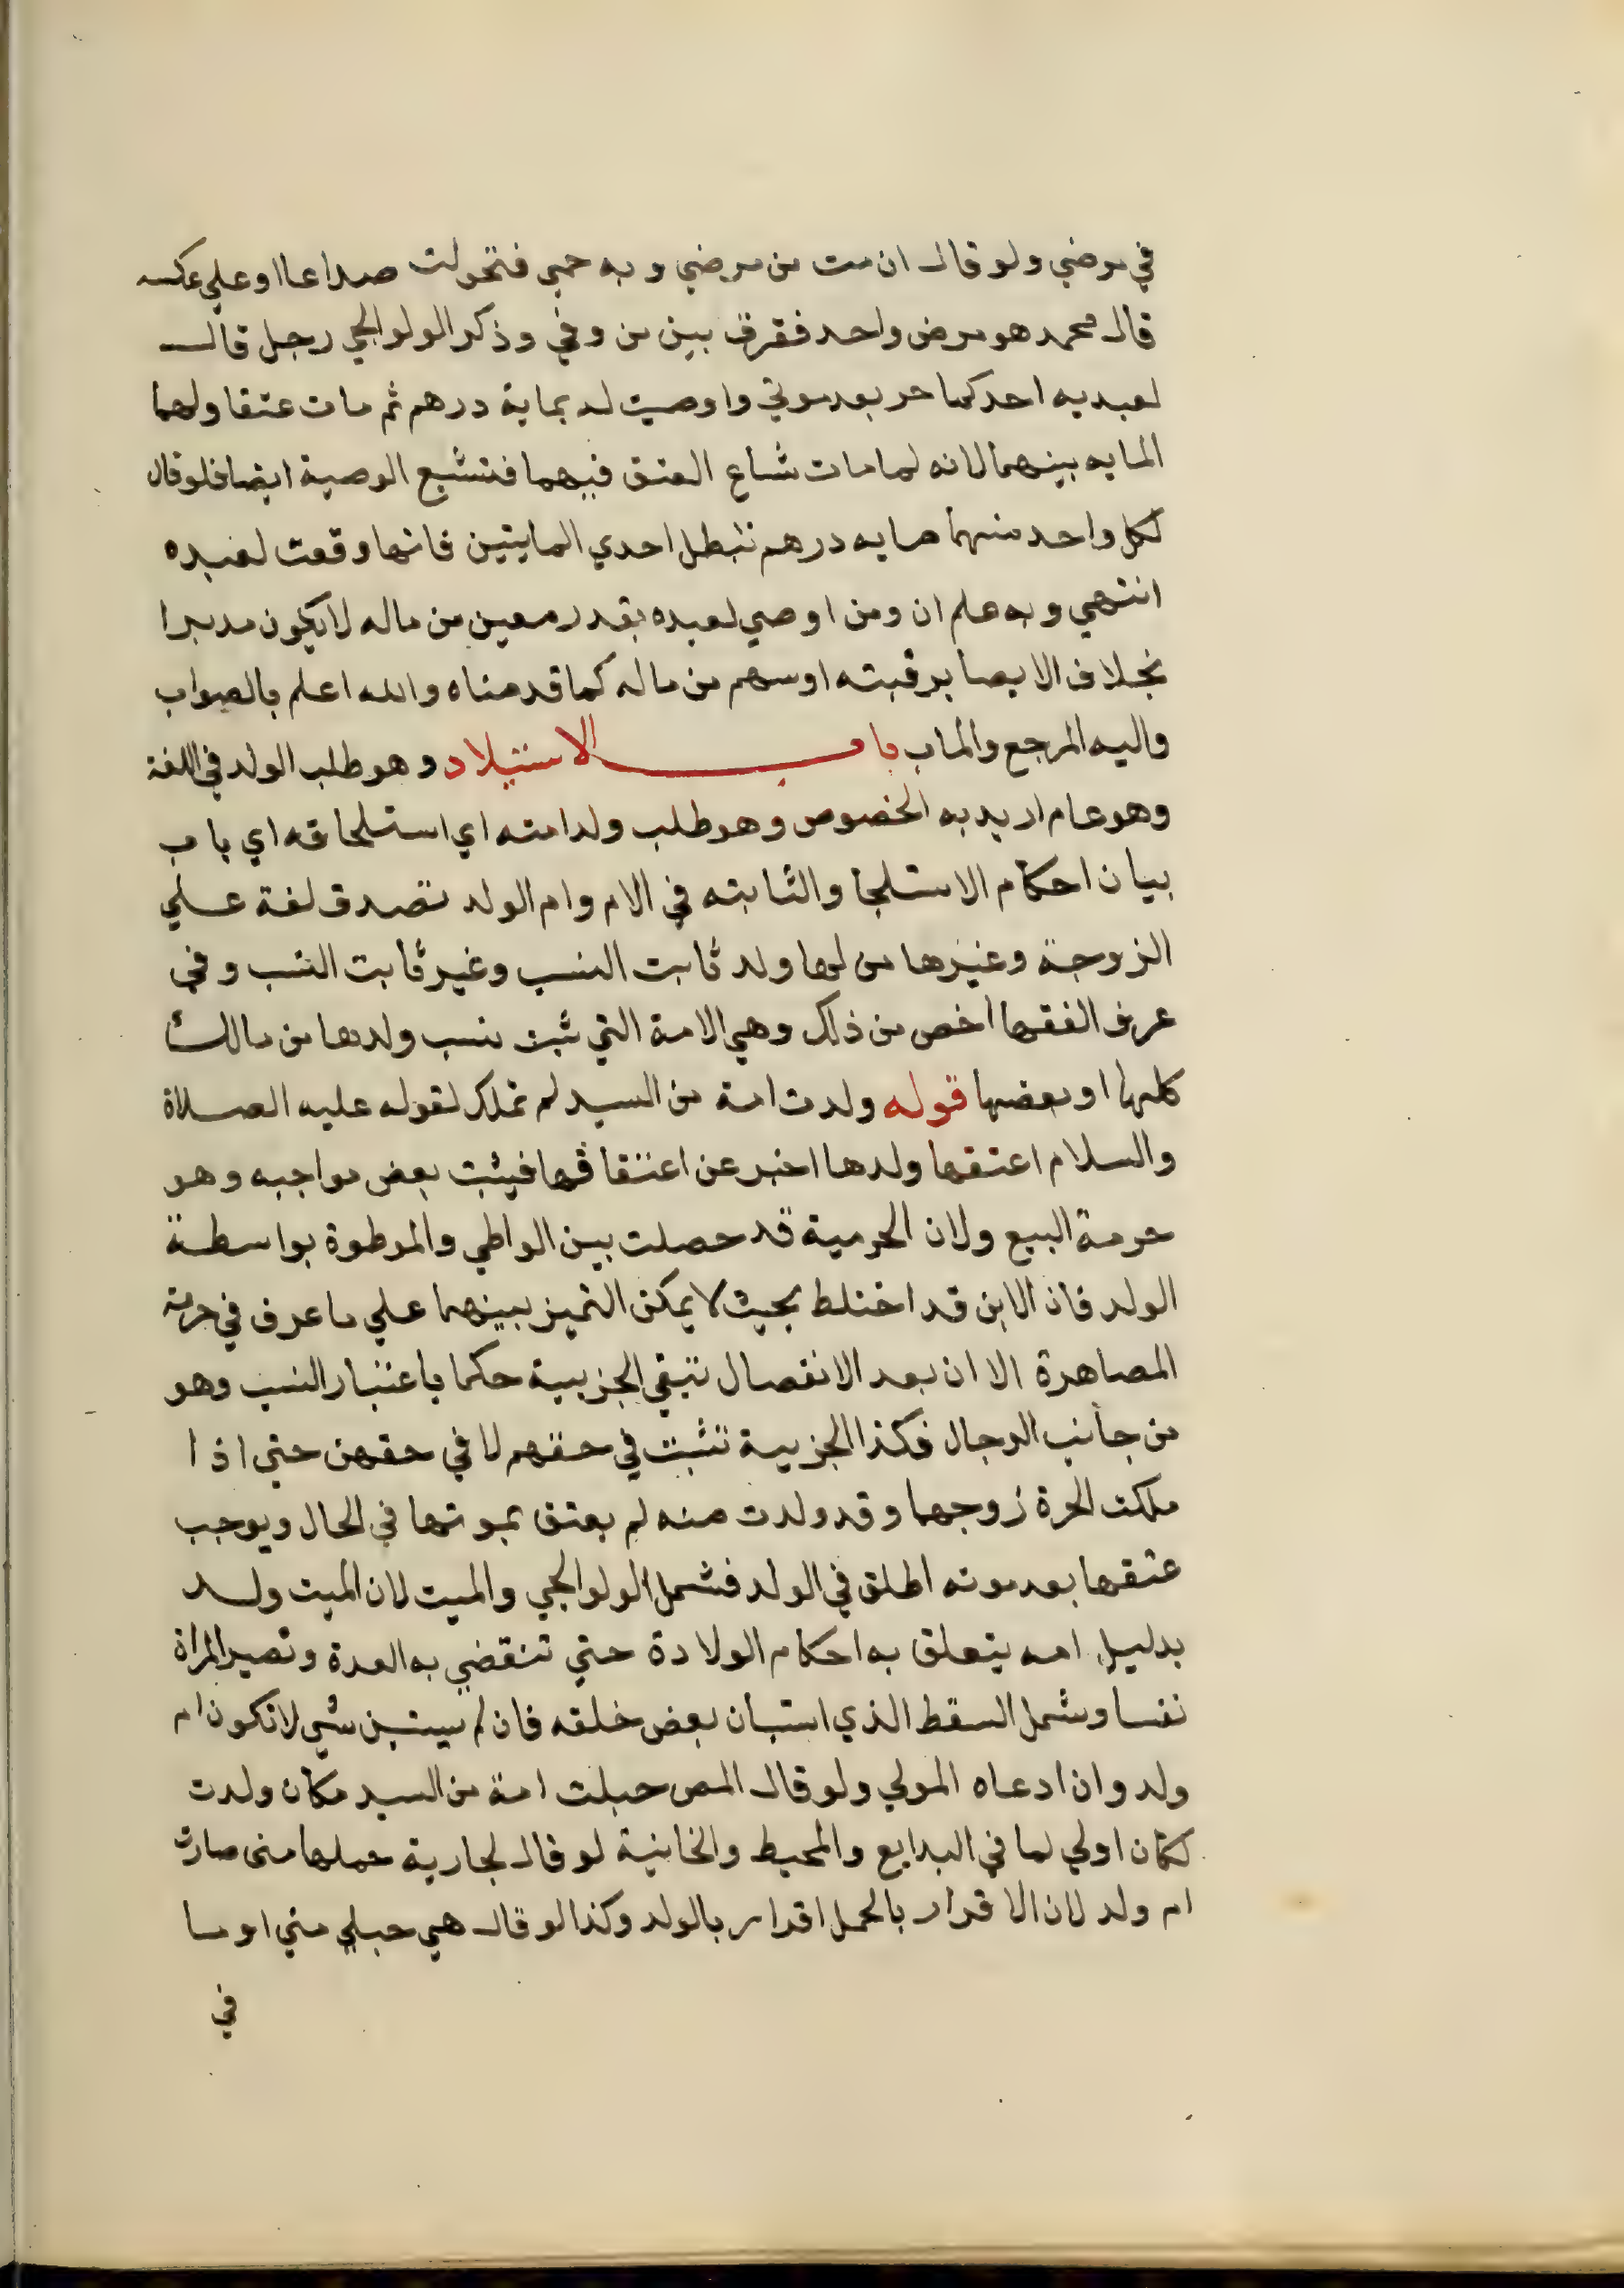 في مرضي ولو قال ان مت من مرضي وبه حمي فتحولت صداعا او علي عكسه
قال محمد هو مرض واحد ففرق بين من وفي وذكر الولوالجي رجل قال
لعبديه احدكما حر بعد موتي واوصيت له بماية درهم ثم مات عتقا ولهما
المايه بينهما لانه لما مات شاع العتق فيهما فتشيع الوصية ايضا فلو قال
لكل واحد منهما مايه درهم تبطل احدي المايتين فانها وقعت لعبده
انتهي وبه علم ان ومن اوصي لعبده بقدر معين من ماله لا يكون مدبرا
بخلاف الايصا برقبته او سهم من ماله كما قدمناه والله اعلم بالصواب
واليه المرجع والماب باب الاستيلاد وهو طلب الولد في اللغة
وهو عام اريد به الخصوص وهو طلب ولد امته اي استلحاقه اي باب
بيان احكام الاستلحا والثابته في الام وام الولد تصدق لغة علي
الزوجة وغيرها من لها ولد ثابت النسب وغير ثابت النسب وفي
عرف الفقها اخص من ذلك وهي الامة التي ثبت نسب ولدها من مالك
كلها او بعضها قوله ولدت امة من السيد لم تملك لقوله عليه الصلاة
والسلام اعتقها ولدها اخبر عن اعتقاقها فيثبت بعض مواجبه وهو
حرمة البيع ولان الحرمية قد حصلت بين الواطي والموطوة بواسطة
الولد فان الابن قد اختلط بحيث لا يمكن التميز بينهما علي ما عرف في حرمة
المصاهرة الا ان بعد الانفصال تبقي الجزيية حكما باعتبار النسب وهو
من جانب الرجال فكذا الجزيية تثبت في حقهم لا في حقهن حتي اذا
ملكت الحرة زوجها وقد ولدت منه لم يعتق بموتها في الحال ويوجب
عتقها بعد موته اطلق في الولد فشمل الولوالجي والميت لان الميت ولد
بدليل امه يتعلق به احكام الولادة حتي تنقضي به العدة وتصير المراة
نفسا وشمل السقط الذي استبان بعض خلقه فان لم يستبن شي لا تكون ام
ولد وان ادعاه المولي ولو قال المص حبلت امة من السيد مكان ولدت
لكان اولي لما في البدايع والمحيط والخانية لو قال لجارية حملها مني صارت
ام ولد لان الاقرار بالحمل اقرار بالولد وكذا لو قال هي حبلي مني او ما
في